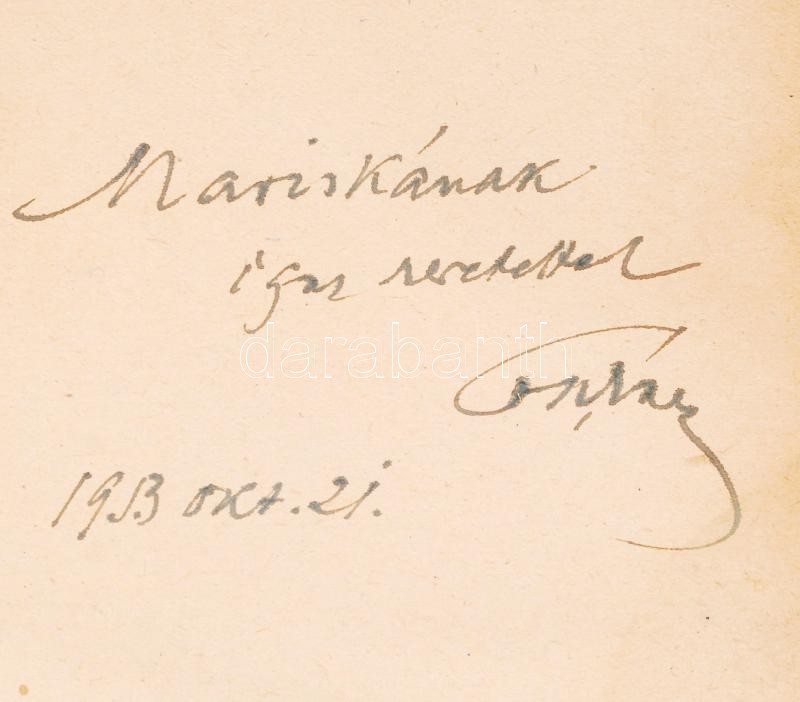 Mariskának
igaz szeretettel
darabanth
1953 okt. 21.